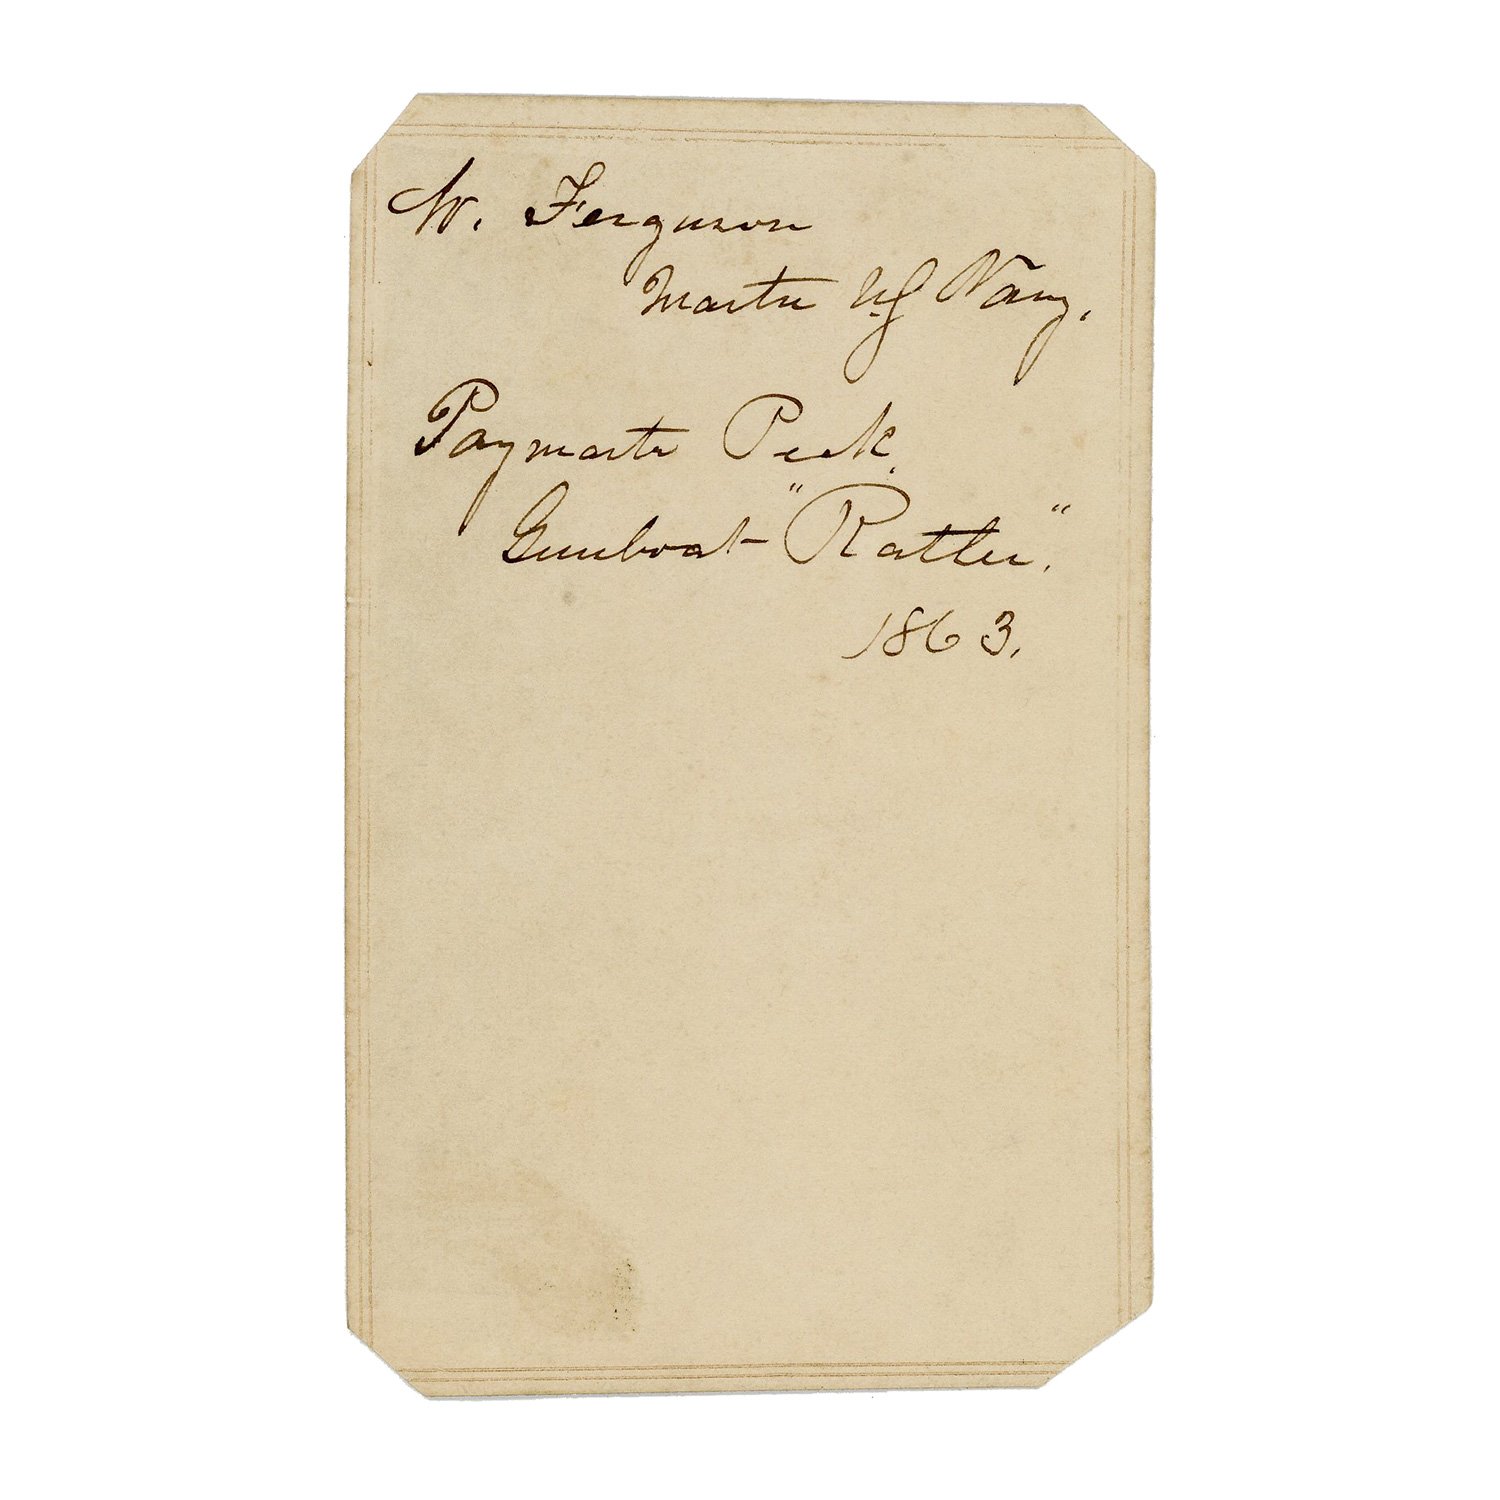 W. Ferguson
Master US Navy.
Paymaster Peek.
Gunboat "Ratler".
1863.